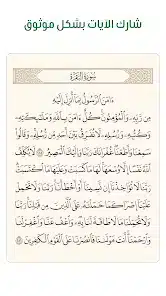 شارك الآيات بشكل موثوق
سُورَةُ البَقَرَةِ
ءَامَنَ ٱلرَّسُولُ بِمَآ أُنزِلَ إِلَيْهِ
مِن رَّبِّهِۦ وَٱلْمُؤْمِنُونَ كُلٌّ ءَامَنَ بِٱللَّهِ وَمَلَٰٓئِكَتِهِۦ
وَكُتُبِهِۦ وَرُسُلِهِۦ لَا نُفَرِّقُ بَيْنَ أَحَدٍ مِّن رُّسُلِهِۦ وَقَالُوا۟
سَمِعْنَا وَأَطَعْنَا غُفْرَانَكَ رَبَّنَا وَإِلَيْكَ ٱلْمَصِيرُ ۝ لَا يُكَلِّفُ
ٱللَّهُ نَفْسًا إِلَّا وُسْعَهَا لَهَا مَا كَسَبَتْ وَعَلَيْهَا مَا ٱكْتَسَبَتْ
رَبَّنَا لَا تُؤَاخِذْنَآ إِن نَّسِينَآ أَوْ أَخْطَأْنَا رَبَّنَا وَلَا تَحْمِلْ
عَلَيْنَآ إِصْرًا كَمَا حَمَلْتَهُۥ عَلَى ٱلَّذِينَ مِن قَبْلِنَا رَبَّنَا
وَلَا تُحَمِّلْنَا مَا لَا طَاقَةَ لَنَا بِهِۦ وَٱعْفُ عَنَّا وَٱغْفِرْ لَنَا
وَٱرْحَمْنَآ أَنتَ مَوْلَىٰنَا فَٱنصُرْنَا عَلَى ٱلْقَوْمِ ٱلْكَٰفِرِينَ ۝